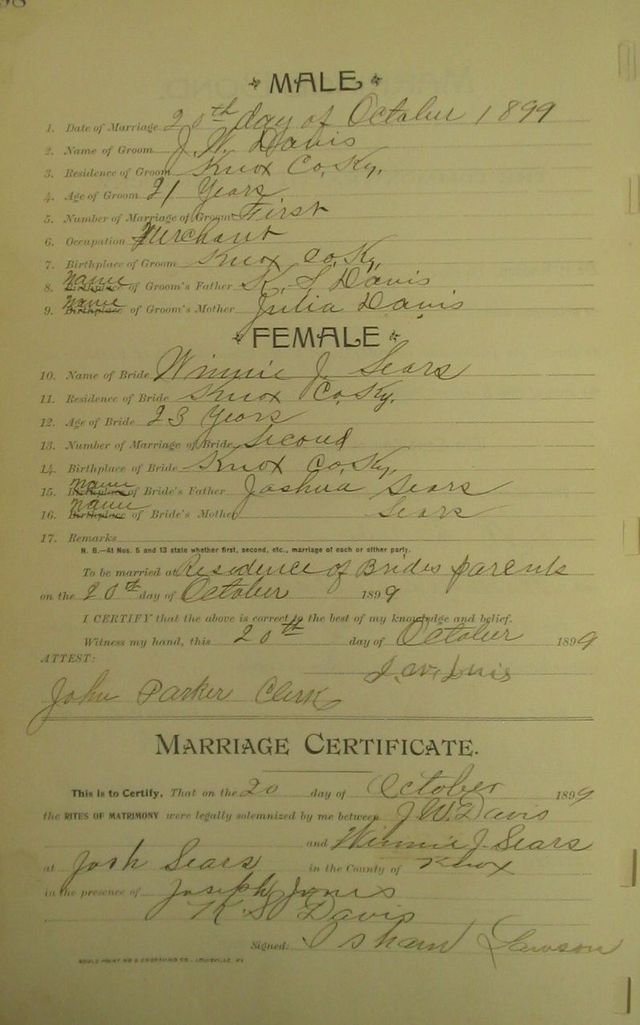 98
MALE
1. Date of Marriage 20th day of October 1899
2. Name of Groom J. W. Davis
3. Residence of Groom Knox Co. Ky.
4. Age of Groom 21 Years
5. Number of Marriage of Groom First
6. Occupation Merchant
7. Birthplace of Groom Knox Co. Ky.
8. Name Birthplace of Groom's Father K. S. Davis
9. Name Birthplace of Groom's Mother Julia Davis
FEMALE
10. Name of Bride Winnie J. Sears
11. Residence of Bride Knox Co. Ky.
12. Age of Bride 23 Years
13. Number of Marriage of Bride Second
14. Birthplace of Bride Knox Co. Ky.
15. Name Birthplace of Bride's Father Joshua Sears
16. Name Birthplace of Bride's Mother Sears
17. Remarks
N. B.—At Nos. 5 and 13 state whether first, second, etc., marriage of each or either party.
To be married at Residence of Brides parents
on the 20th day of October 1899
I CERTIFY that the above is correct to the best of my knowledge and belief.
Witness my hand, this 20th day of October 1899
ATTEST:
J. W. Davis
John Parker Clerk
MARRIAGE CERTIFICATE.
This is to Certify, That on the 20 day of October 1899
the RITES OF MATRIMONY were legally solemnized by me between J. W. Davis
and Winnie J. Sears
at Josh Sears in the County of Knox
in the presence of Joseph Jones
K. S. Davis
Signed: Isham Lawson